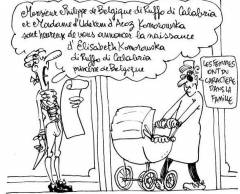 Monsieur Philippe de Belgique di Ruffo di Calabria
et Madame d'Udekem d'Acoz Komorowska
sont heureux de vous annoncer la naissance
d'Elisabeth Komorowska
di Ruffo di Calabria
princesse de Belgique
LES FEMMES
ONT DU
CARACTERE
DANS LA
FAMILLE